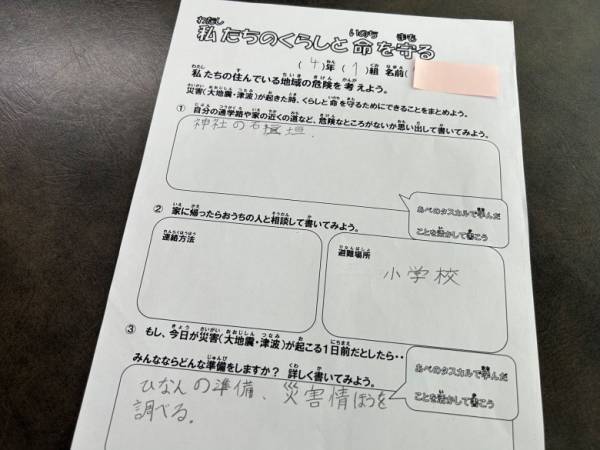 私たちのくらしと命を守る
(4)年(1)組 名前(
私たちの住んでいる地域の危険を考えよう。
災害(大地震・津波)が起きた時、くらしと命を守るためにできることをまとめよう。
① 自分の通学路や家の近くの道など、危険なところがないか思い出して書いてみよう。
神社の石垣.
あべのタスカルで学んだ
ことを活かして書こう
② 家に帰ったらおうちの人と相談して書いてみよう。
連絡方法
避難場所
小学校
③ もし、今日が災害(大地震・津波)が起こる1日前だとしたら・・
みんなならどんな準備をしますか? 詳しく書いてみよう。
あべのタスカルで学んだ
ことを活かして書こう
ひなんの準備、災害情ほうを
調べる.